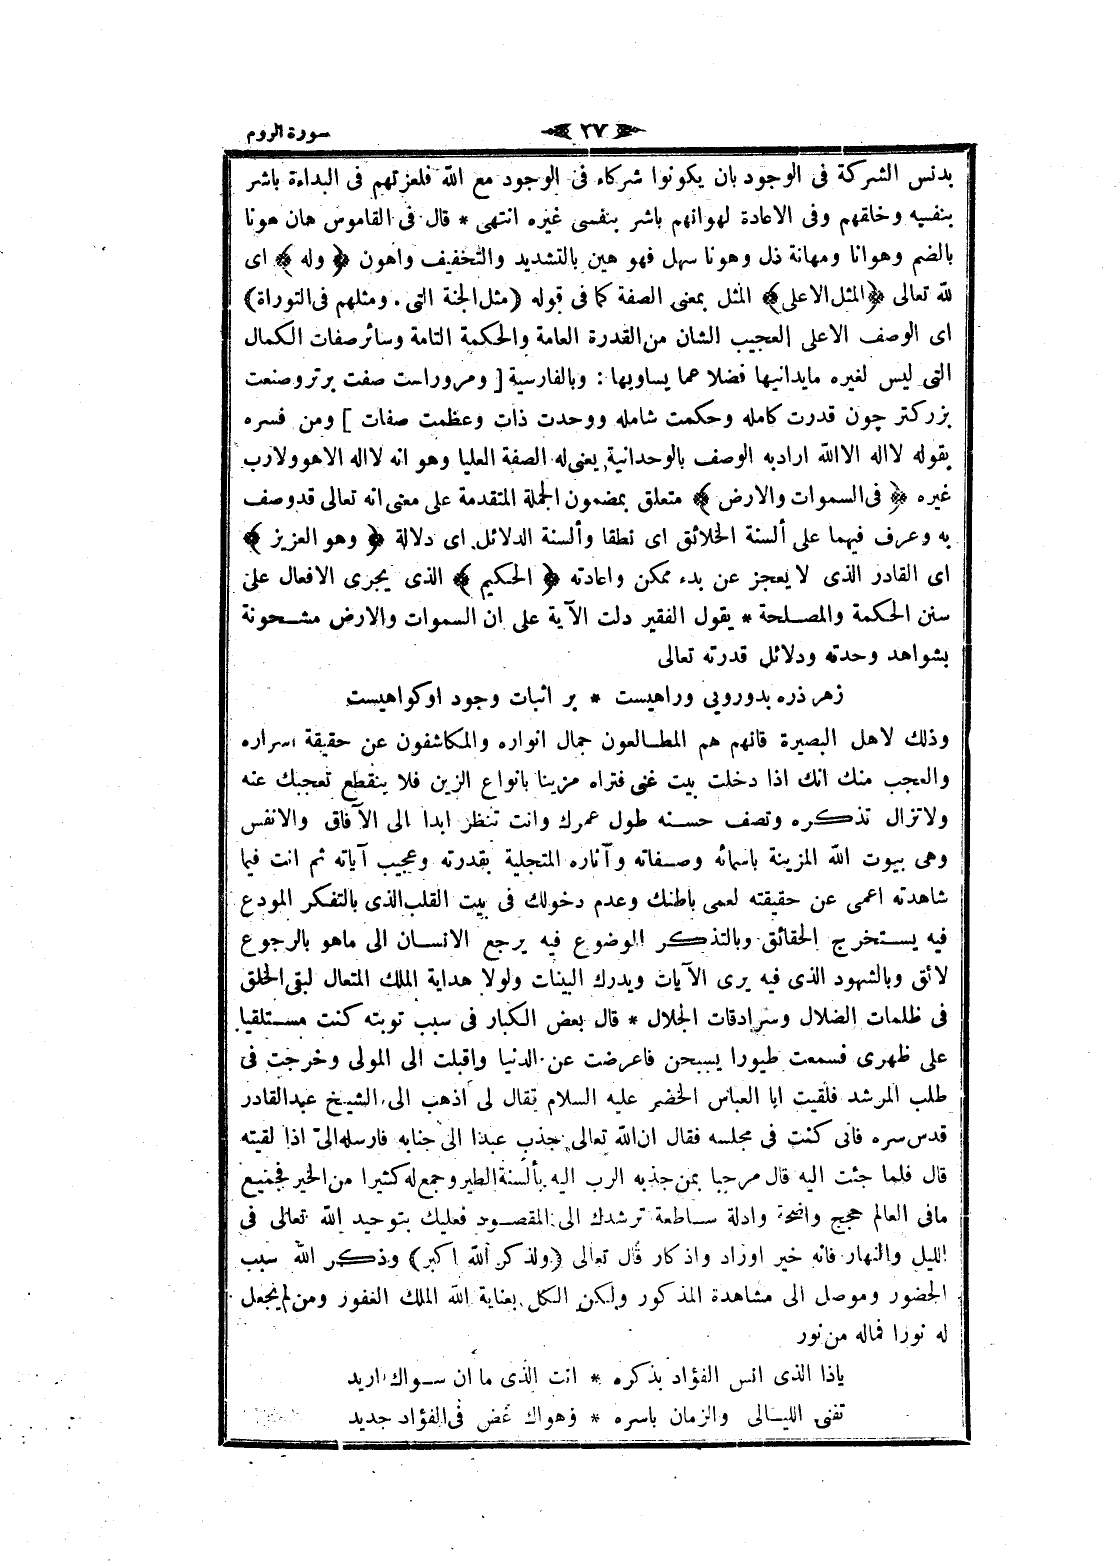 سورة الروم ٢٧
بدنس الشركة فى الوجود بان يكونوا شركاء فى الوجود مع الله فلعزتهم فى البداءة باشر
بنفسه وخلقهم وفى الاعادة لهوانهم باشر بنفسى غيره انتهى * قال فى القاموس هان هونا
بالضم وهوانا ومهانة ذل وهونا سهل فهو هين بالتشديد والتخفيف واهون ﴿ وله ﴾ اى
لله تعالى ﴿ المثل الاعلى ﴾ المثل بمعنى الصفة كما فى قوله (مثل الجنة التى . ومثلهم فى التوراة)
اى الوصف الاعلى العجيب الشان من القدرة العامة والحكمة التامة وسائر صفات الكمال
التى ليس لغيره مايدانيها فضلا عما يساويها : وبالفارسية [ ومروراست صفت برتر وصنعت
بزركتر چون قدرت كامله وحكمت شامله ووحدت ذات وعظمت صفات ] ومن فسره
بقوله لااله الاالله ارادبه الوصف بالوحدانية يعنى له الصفة العليا وهو انه لااله الاهو ولارب
غيره ﴿ فى السموات والارض ﴾ متعلق بمضمون الجملة المتقدمة على معنى انه تعالى قدوصف
به وعرف فيهما على ألسنة الخلائق اى نطقا وألسنة الدلائل اى دلالة ﴿ وهو العزيز ﴾
اى القادر الذى لايعجز عن بدء ممكن واعادته ﴿ الحكيم ﴾ الذى يجرى الافعال على
سنن الحكمة والمصلحة * يقول الفقير دلت الآية على ان السموات والارض مشحونة
بشواهد وحدته ودلائل قدرته تعالى
زهر ذره بدورويى وراهيست * بر اثبات وجود اوكواهيست
وذلك لاهل البصيرة فانهم هم المطالعون جمال انواره والمكاشفون عن حقيقة اسراره
والعجب منك انك اذا دخلت بيت غنى فتراه مزينا بانواع الزين فلا ينقطع تعجبك عنه
ولاتزال تذكره وتصف حسنه طول عمرك وانت تنظر ابدا الى الآفاق والانفس
وهى بيوت الله المزينة باسمائه وصفاته وآثاره المتجلية بقدرته وعجيب آياته ثم انت فيما
شاهدته اعمى عن حقيقته لعمى باطنك وعدم دخولك فى بيت القلب الذى بالتفكر المودع
فيه يستخرج الحقائق وبالتذكر الموضوع فيه يرجع الانسان الى ماهو بالرجوع
لائق وبالشهود الذى فيه يرى الآيات ويدرك البينات ولولا هداية الملك المتعال لبقى الخلق
فى ظلمات الضلال وسرادقات الجلال * قال بعض الكبار فى سبب توبته كنت مستلقيا
على ظهرى فسمعت طيورا يسبحن فاعرضت عن الدنيا واقبلت الى المولى وخرجت فى
طلب المرشد فلقيت ابا العباس الخضر عليه السلام فقال لى اذهب الى الشيخ عبدالقادر
قدس سره فانى كنت فى مجلسه فقال ان الله تعالى جذب عبدا الى جنابه فارسله الىّ اذا لقيته
قال فلما جئت اليه قال مرحبا بمن جذبه الرب اليه بألسنة الطير وجمع له كثيرا من الخير فجميع
مافى العالم حجج واضحة وادلة ساطعة ترشدك الى المقصود فعليك بتوحيد الله تعالى فى
الليل والنهار فانه خير اوراد واذكار قال تعالى (ولذكر الله اكبر) وذكر الله سبب
الحضور وموصل الى مشاهدة المذكور ولكن الكل بعناية الله الملك الغفور ومن لم يجعل
له نورا فماله من نور
ياذا الذى انس الفؤاد بذكره * انت الذى ما ان سواك اريد
تفنى الليالى والزمان باسره * وهواك غض فى الفؤاد جديد